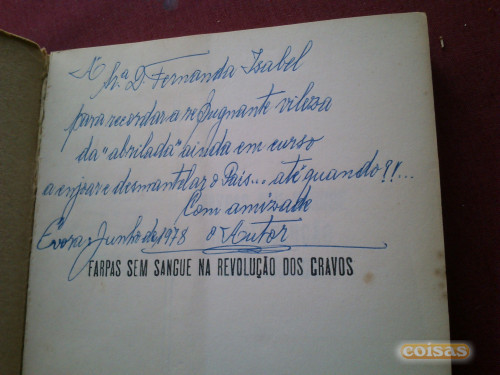 À Sr.ª D. Fernanda Isabel
para recordar a repugnante vileza
da "abrilada" ainda em curso
a enjoar e desmantelar o País... até quando?!...
Com amizade
Évora, Junho de 1978 o Autor
FARPAS SEM SANGUE NA REVOLUÇÃO DOS CRAVOS
coisas